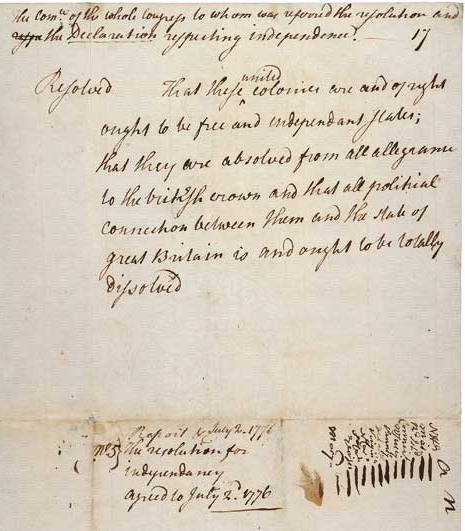 The Com.ee of the whole Congress to whom was referred the resolution and
the Declaration respecting independence.
17
Resolved That these united colonies are and of right
ought to be free and independant states;
that they are absolved from all allegiance
to the british crown and that all political
connection between them and the state of
great Britain is and ought to be totally
dissolved
Report July 2. 1776
No 3 The resolution for
independancy
agreed to July 2d. 1776